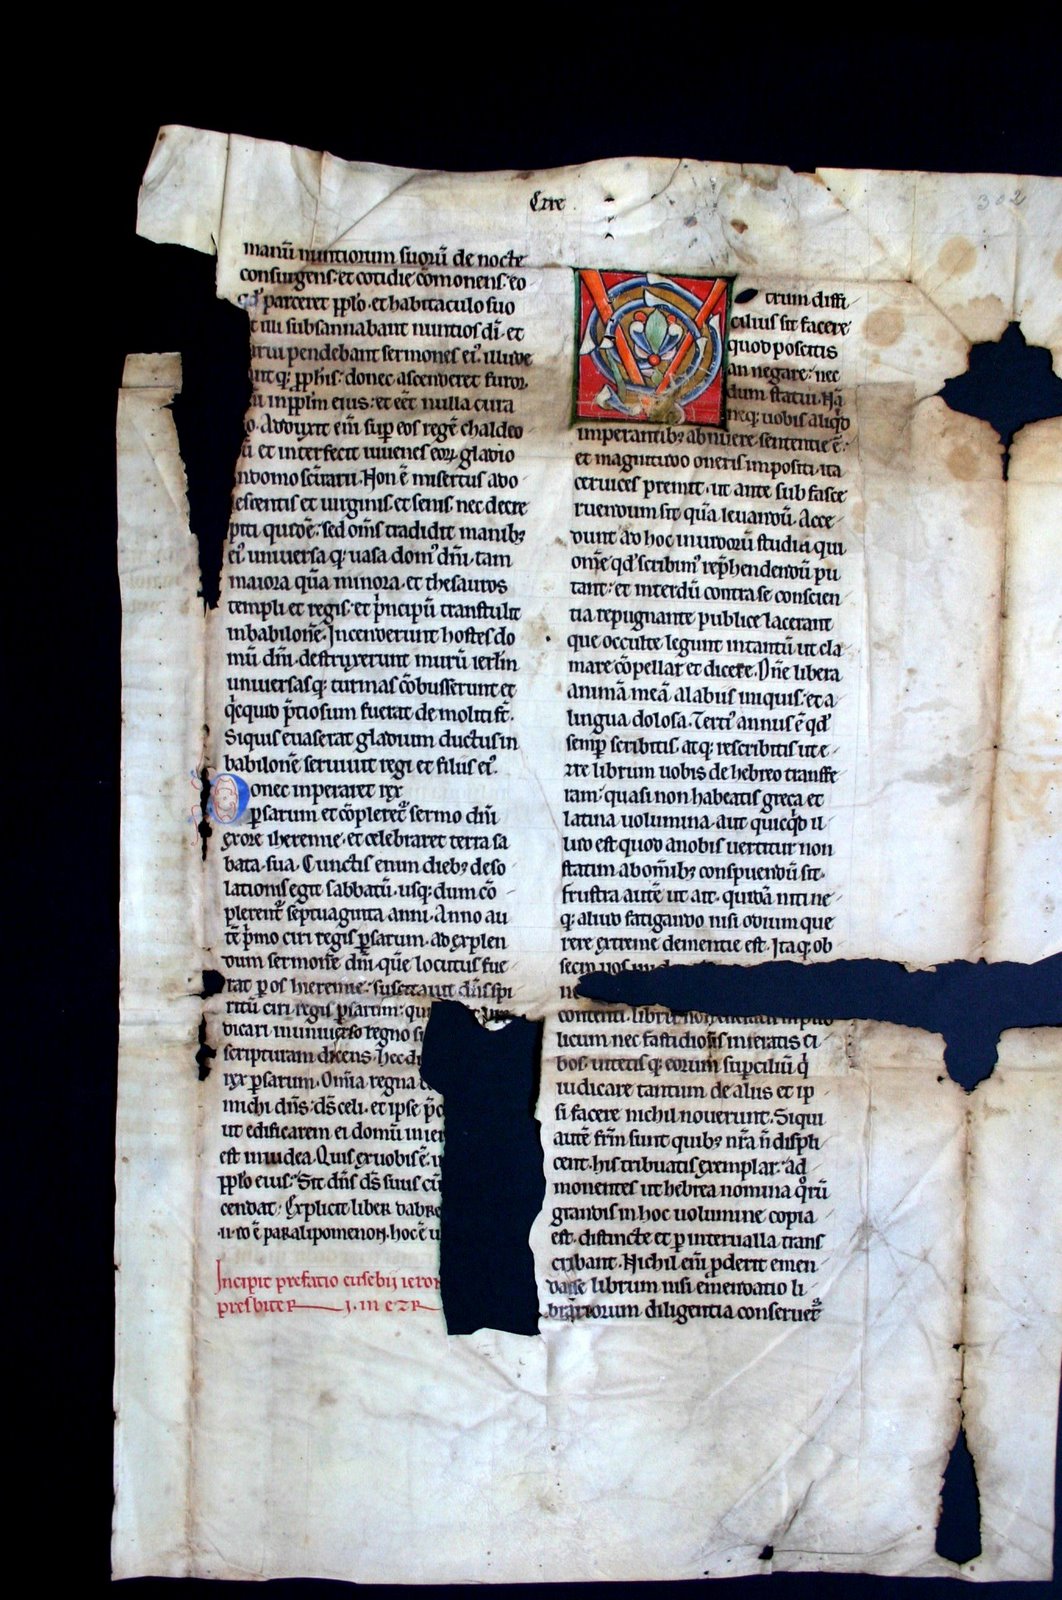 Czre
302
manū nuntiorum suorū de nocte
consurgens· et cotidie cōmonens· eo
qd' parceret pplo· et habitaculo suo
illi subsannabant nuntios dī· et
pendebant sermones ei'· illude
q; pphīs· donec ascenderet furor
inpplm eius· et eēt nulla cura
Adduxit eni sup eos regē chaldeo
et interfecit iuuenes eoꝝ gladio
ndomo scūarii· Non ē misertus ado
lescentis et uirginis· et senis· nec decre
piti quidē· sed oms tradidit manibꝫ
ei'· uniuersa q; uasa dom' dni· tam
maiora quā minora· et thesauros
templi et regis· et pncipū transtulit
inbabilonē· Incenderunt hostes do
mū dni· destruxerunt murū ierlm
uniuersasq; turras cōbusserunt et
qcquid ptiosum fuerat demoliti st·
Siquis euaserat gladium ductus in
babilonē seruiuit regi et filiis ei'·
Donec inperaret rex
psarum et cōpleretʳ sermo dni
exore iheremie· et celebraret terra sa
bata sua· Cunctis enim diebꝫ deso
lationis egit sabbatū· usq; dum cō
plerentʳ septuaginta anni· Anno au
tē pmo ciri regis psarum· ad explen
dum sermonē dni· quē locutus fue
rat p os hieremie· suscitauit dns spi
ritū ciri regis psarum: qui
dicari inuniuerso regno s
scripturam dicens· hec di
rex psarum· Omīa regna
michi dns· ds celi· et ipse pc
ut edificarem ei domū inier
est iniudea· Quis exuobis ē· i
pplo eius· Sit dns ds suus cū
cendat· Explicit liber dabre
paralipomenon· hoc ē
Incipit prefatio eusebii ieron
presbiter I· in ezr
Vtrum diffi
cilius sit facere
quod poscitis
an negare· nec
dum statui· Nā
neq; uobis aliqd
imperantibꝫ abnuere sententie ē·
et magnitudo oneris impositi· ita
ceruices premit· ut ante sub fasce
ruendum sit quā leuandū· Acce
dunt ad hoc inuidorū studia qui
omē qd' scribim' rephendendū pu
tant· et interdū contra se conscien
tia repugnante publice lacerant
que occulte legunt intantū ut cla
mare cōpellar et dicere· Dne libera
animā meā alabiis iniquis· et a
lingua dolosa· Terti' annus ē qd'
semp scribitis· atq; rescribitis ut e
zre librum uobis de hebreo transfe
ram· quasi non habeatis greca et
latina uolumina· aut quicqd il
lud est quod anobis uertitur non
statim abomibꝫ conspuendū sit·
frustra autē ut ait· quidā niti ne
q; aliud fatigando nisi odium que
rere extreme dementie est· Itaq; ob
secro uos
contenti libri
licum nec fastidiosis ingeratis ci
bos· uitetis q; eorum supciliū q̇
iudicare tantum de aliis et ip
si facere nichil nouerunt· Siqui
autē frm sunt quibꝫ nra n̄ displi
cent· his tribuatis exemplar· ad
monentes ut hebrea nomina quorū
grandis in hoc uolumine copia
est· distincte et p interualla trans
cribant· Nichil eni pderit emen
dasse librum nisi emendatio li
brariorum diligentia conseruetʳ